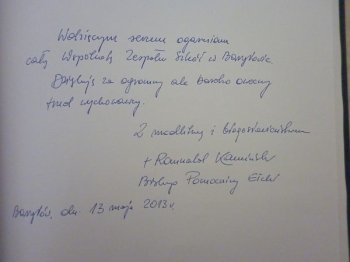 Wdzięcznym sercem ogarniam
cały Wspólnotę Zespołu Szkół w
Dziękuję za ogromny ale bardzo owocny
trud wychowawczy.
Z modlitwą i błogosławieństwem
+ Romuald Kamiński
Biskup Pomocniczy Ełcki
dn. 13 maja 2013 r.